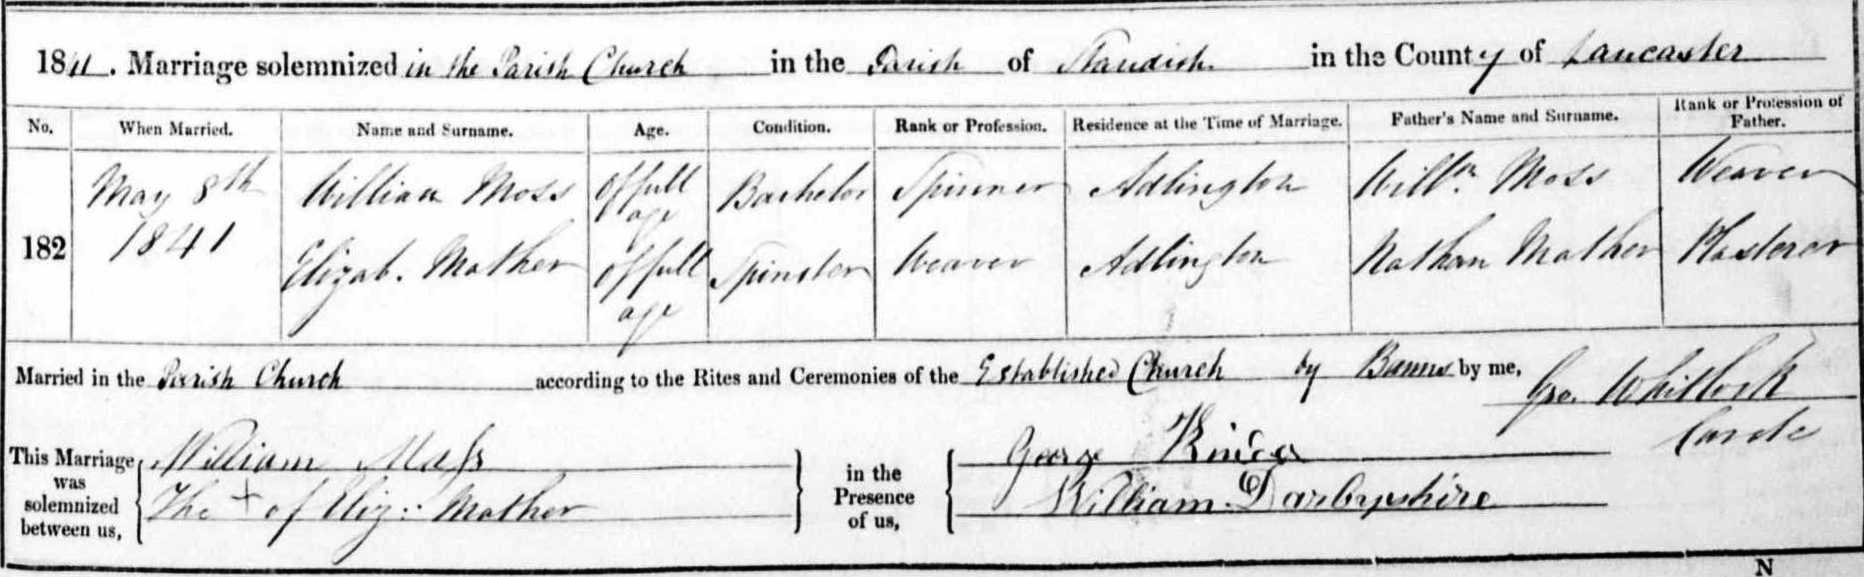 1841. Marriage solemnized in the Parish Church in the Parish of Standish in the County of Lancaster
No. When Married. Name and Surname. Age. Condition. Rank or Profession. Residence at the Time of Marriage. Father's Name and Surname. Rank or Profession of Father.
182 May 8th 1841 William Moss Of full age Bachelor Spinner Adlington Willm Moss Weaver
Elizab. Mather Of full age Spinster Weaver Adlington Nathan Mather Plasterer
Married in the Parish Church according to the Rites and Ceremonies of the Established Church by Banns by me,
Geo. Whitlock
Curate
This Marriage was solemnized between us, William Moss
The + of Eliz: Mather
in the Presence of us, George
William Darbyshire
N